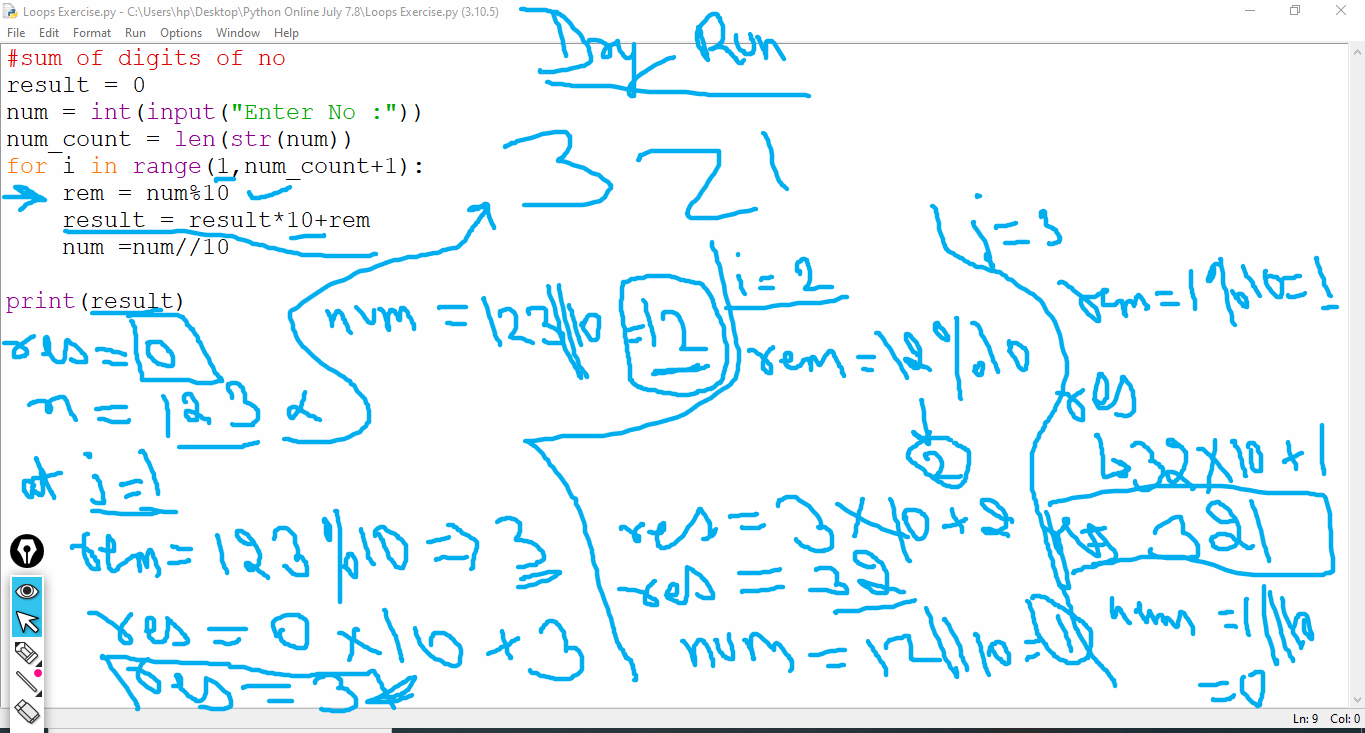 Loops Exercise.py - C:\Users\hp\Desktop\Python Online July 7.8\Loops Exercise.py (3.10.5)
File Edit Format Run Options Window Help
#sum of digits of no
result = 0
num = int(input("Enter No :"))
num_count = len(str(num))
for i in range(1,num_count+1):
rem = num%10
result = result*10+rem
num =num//10
print(result)
Dry Run
321
res = 0
n = 123
at i=1
rem = 123%10 => 3
res = 0 x 10 + 3
res = 3
num = 123//10 = 12
i = 2
rem = 12%10
2
res = 3 x 10 + 2
res = 32
num = 12//10 = 1
i = 3
rem = 1%10 = 1
res
32 x 10 + 1
res 321
num = 1//10
= 0
Ln: 9 Col: 0